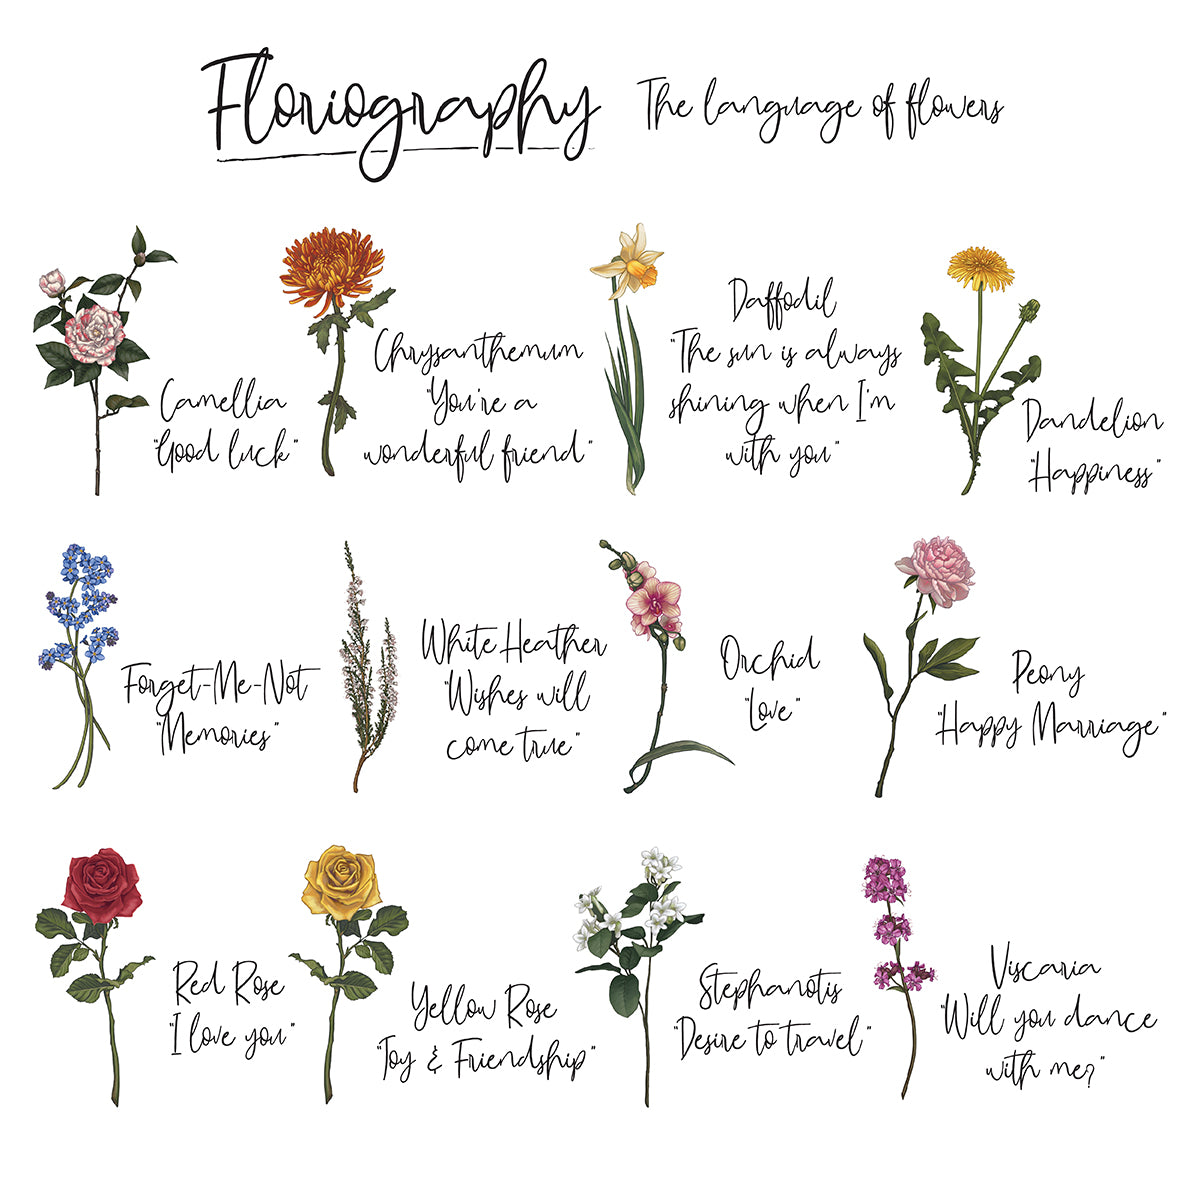 Floriography The language of flowers
Camellia
"Good luck"
Chrysanthemum
"You're a
wonderful friend"
Daffodil
"The sun is always
shining when I'm
with you"
Dandelion
"Happiness"
Forget-Me-Not
"Memories"
White Heather
"Wishes will
come true"
Orchid
"Love"
Peony
"Happy Marriage"
Red Rose
"I love you"
Yellow Rose
"Joy & Friendship"
Stephanotis
"Desire to travel"
Viscaria
"Will you dance
with me?"